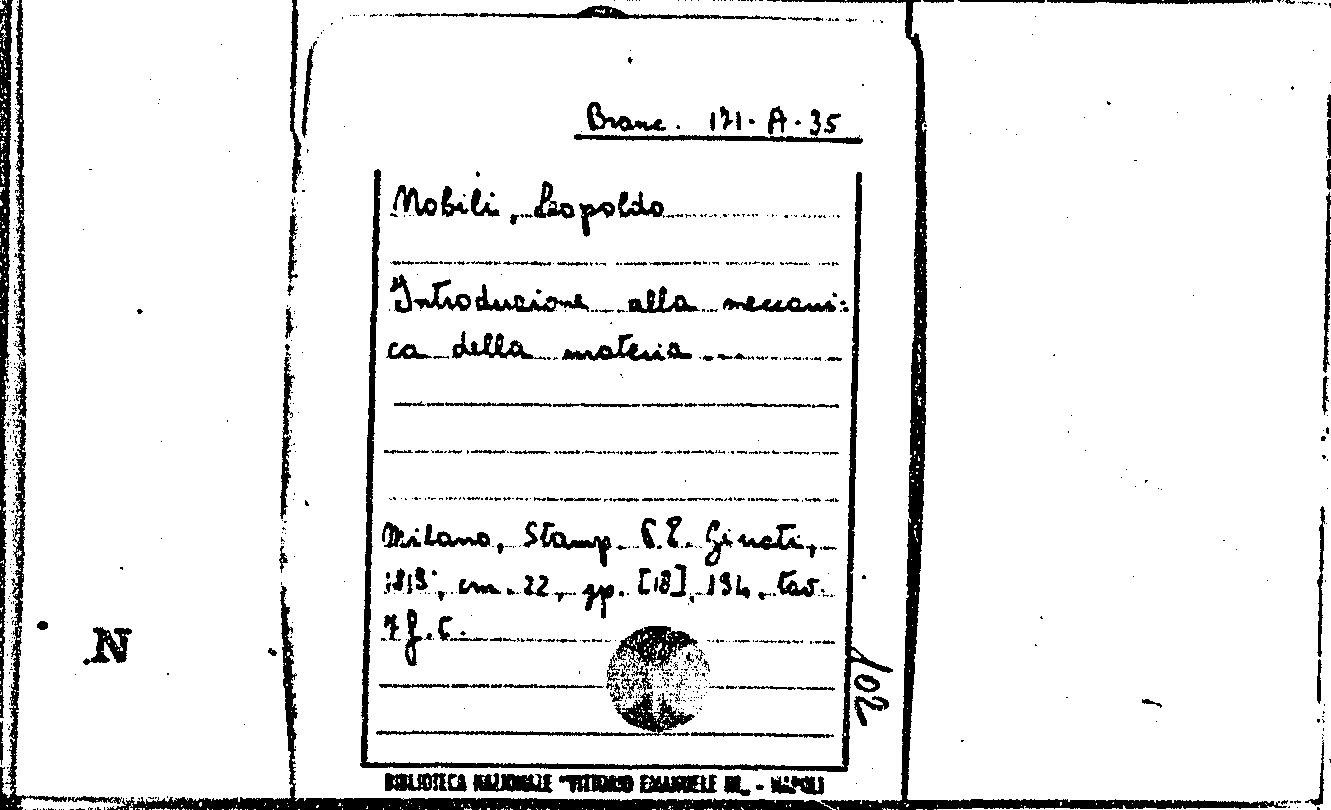 Branc. 171-A-35
Nobili, Leopoldo
Introduzione alla meccani:
ca della materia ...
Milano, Stamp. P.E. Giusti,
1819, cm. 22, pp. [18], 194, tav.
7 f.t.
N
102
BIBLIOTECA NAZIONALE "VITTORIO EMANUELE III„ - NAPOLI